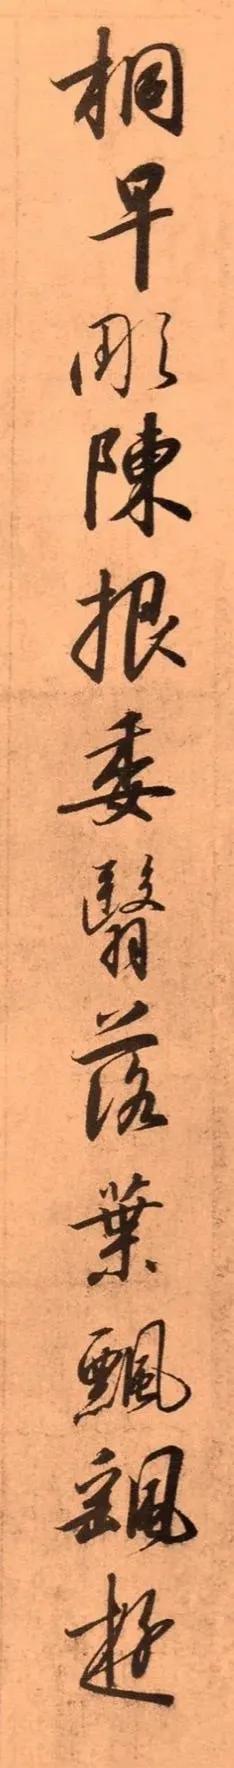 桐早彫陳根委翳落葉飄颻遊